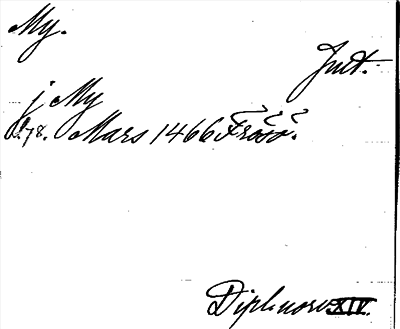 My.
Jmt.
j My
18. Mars 1466 Frösö.
Dipl. norv. XIV.